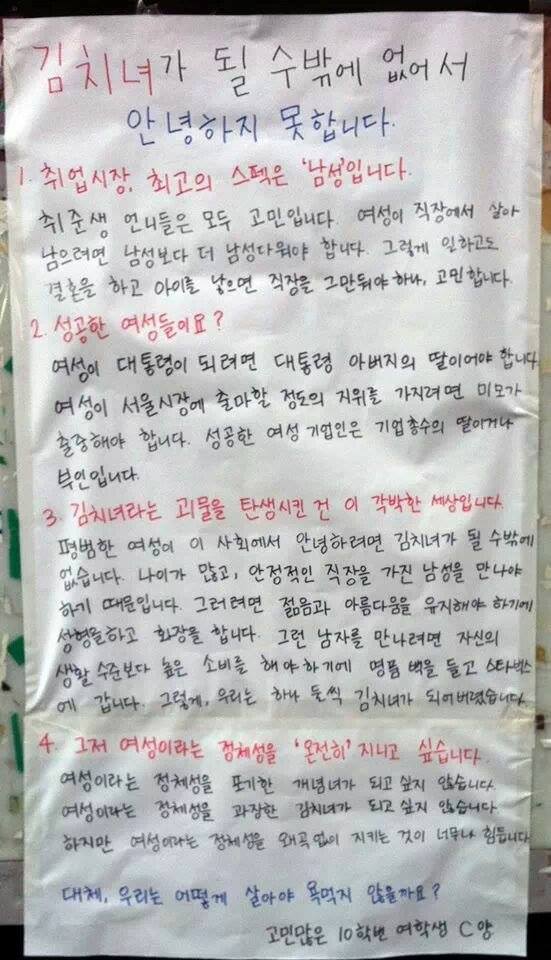 김치녀가 될 수밖에 없어서
안녕하지 못합니다.
1. 취업시장, 최고의 스펙은 '남성'입니다.
취준생 언니들은 모두 고민입니다. 여성이 직장에서 살아
남으려면 남성보다 더 남성다워야 합니다. 그렇게 일하고도
결혼을 하고 아이를 낳으면 직장을 그만둬야 하나, 고민합니다.
2. 성공한 여성들이요?
여성이 대통령이 되려면 대통령 아버지의 딸이어야 합니다.
여성이 서울시장에 출마할 정도의 지위를 가지려면 미모가
출중해야 합니다. 성공한 여성 기업인은 기업총수의 딸이거나
부인입니다.
3. 김치녀라는 괴물을 탄생시킨 건 이 각박한 세상입니다.
평범한 여성이 이 사회에서 안녕하려면 김치녀가 될 수밖에
없습니다. 나이가 많고, 안정적인 직장을 가진 남성을 만나야
하기 때문입니다. 그러려면 젊음과 아름다움을 유지해야 하기에
성형을하고 화장을 합니다. 그런 남자를 만나려면 자신의
생활 수준보다 높은 소비를 해야하기에 명품 백을 들고 스타벅스
에 갑니다. 그렇게, 우리는 하나 둘씩 김치녀가 되어버렸습니다.
4. 그저 여성이라는 정체성을 '온전히' 지니고 싶습니다.
여성이라는 정체성을 포기한 개념녀가 되고 싶지 않습니다.
여성이라는 정체성을 과장한 김치녀가 되고 싶지 않습니다.
하지만 여성이라는 정체성을 왜곡없이 지키는 것이 너무나 힘듭니다
대체, 우리는 어떻게 살아야 욕먹지 않을까요?
고민많은 10학번 여학생 C양